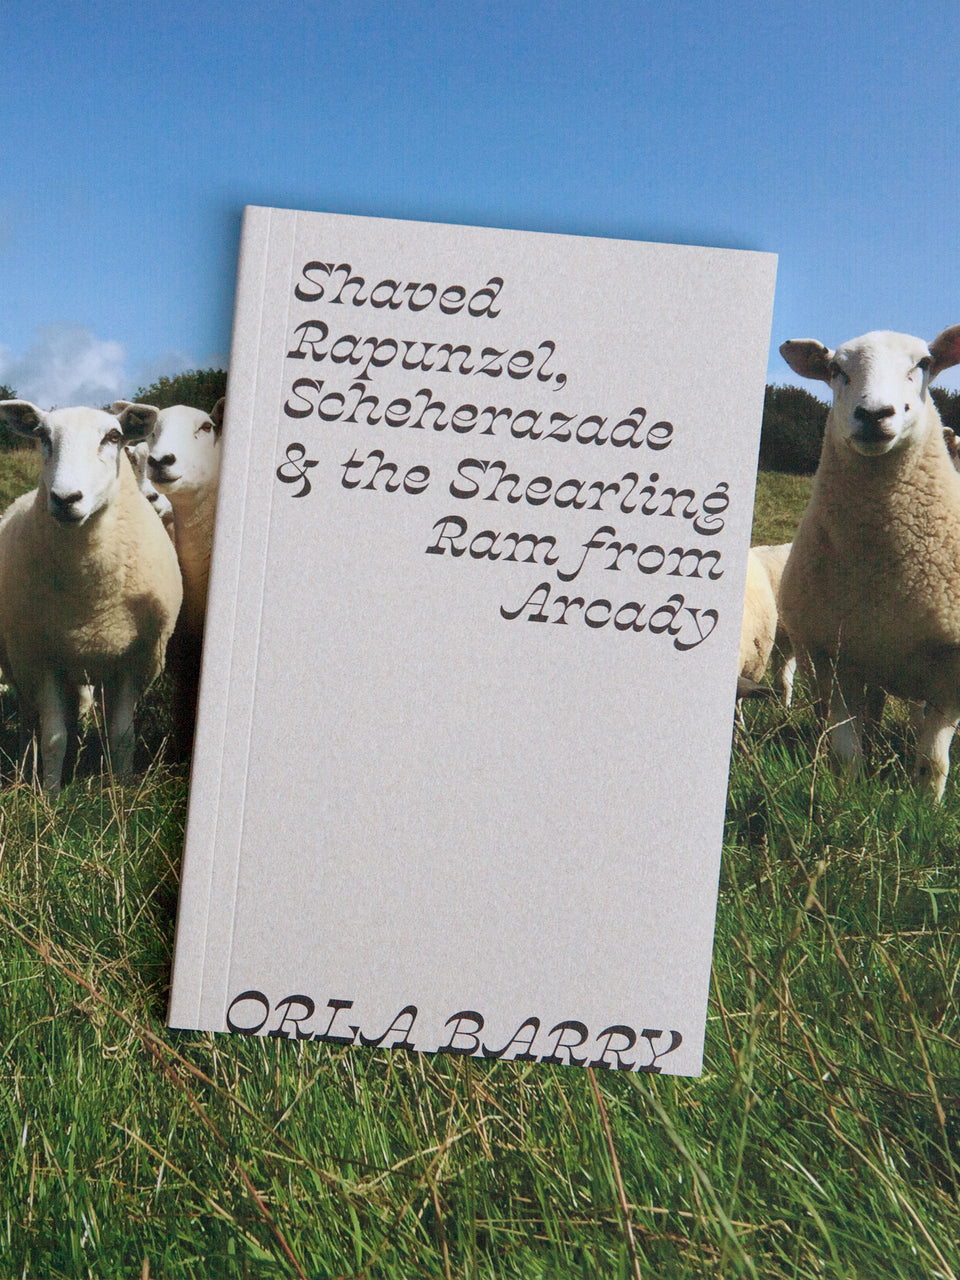 Shaved
Rapunzel,
Scheherazade
& the Shearling
Ram from
Arcady
ORLA BARRY